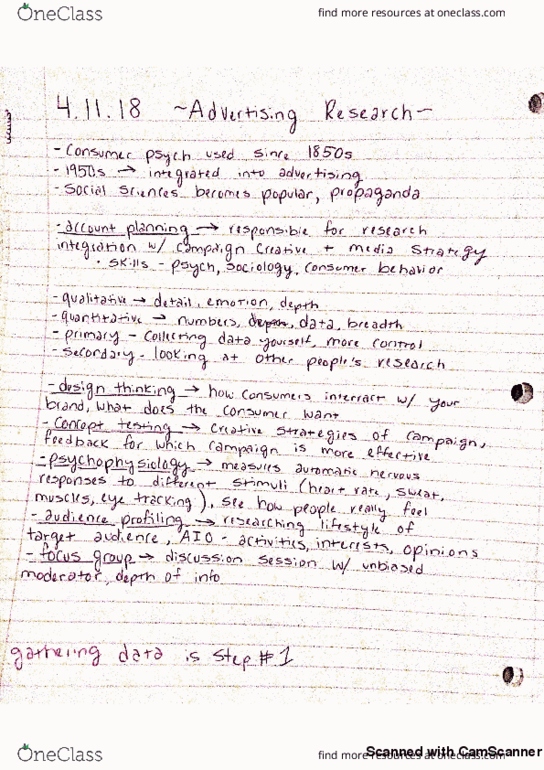 OneClass
find more resources at oneclass.com
4.11.18 ~Advertising Research~
- Consumer psych used since 1850s
- 1950s → integrated into advertising
- Social Sciences becomes popular, propaganda
- account planning → responsible for research
integration w/ campaign creative + media strategy
• skills - psych, sociology, consumer behavior
- qualitative → detail, emotion, depth
- quantitative → numbers, depth, data, breadth
- primary - collecting data yourself, more control
- Secondary - looking at other people's research
- design thinking → how consumers interract w/ your
brand, what does the consumer want
- Concept testing → creative strategies of campaign,
feedback for which campaign is more effective
- psychophysiology → measures automatic nervous
responses to different stimuli (heart rate, sweat,
muscles, eye tracking), see how people really feel
- audience profiling → researching lifestyle of
target audience, AIO - activities, interests, opinions
- focus group → discussion session w/ unbiased
moderator, depth of info
gathering data is step #1
OneClass
find more resources at oneclass.com
Scanned with CamScanner